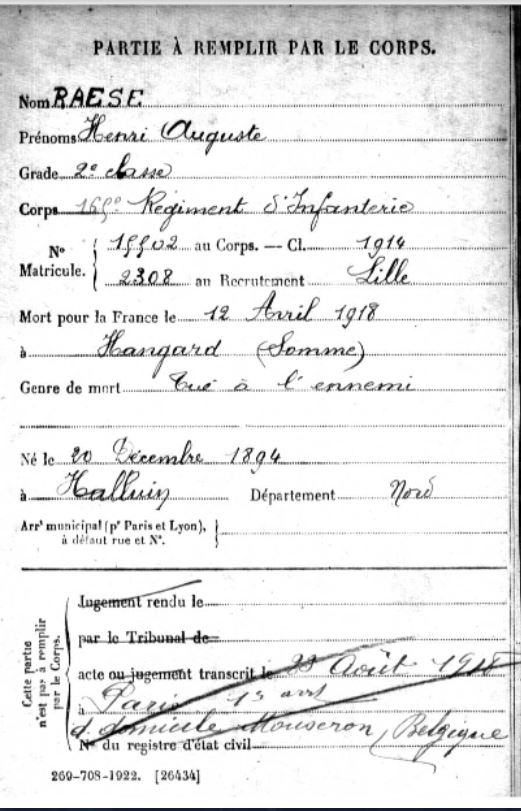 PARTIE À REMPLIR PAR LE CORPS.
Nom RAESE
Prénoms Henri Auguste
Grade 2e classe
Corps 169e Régiment d'Infanterie
No Matricule. 15502 au Corps. — Cl. 1914
2308 au Recrutement Lille
Mort pour la France le 12 Avril 1918
à Hangard (Somme)
Genre de mort Tué à l'ennemi
Né le 20 Décembre 1894
à Halluin Département Nord
Arrt municipal (pr Paris et Lyon),
à défaut rue et No.
Cette partie n'est pas à remplir par le Corps.
Jugement rendu le
par le Tribunal de
acte ou jugement transcrit le 23 Août 1918
à Paris 13 arrt
d. domicile Mouscron, Belgique
No du registre d'état civil
269-708-1922. [26434]